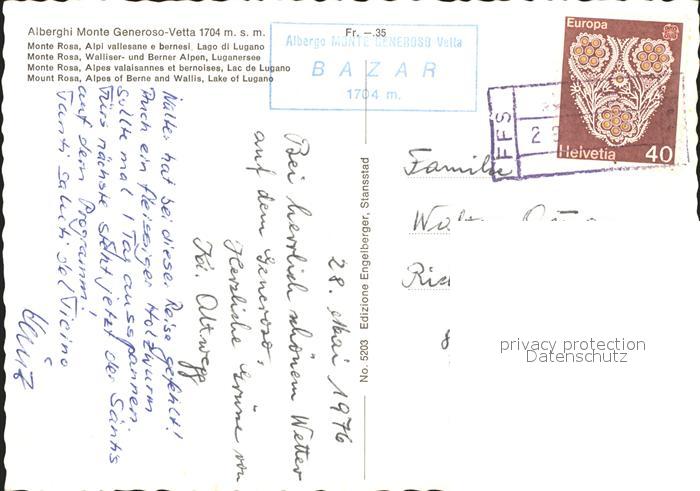 Alberghi Monte Generoso-Vetta 1704 m. s. m.
Monte Rosa, Alpi vallesane e bernesi, Lago di Lugano
Monte Rosa, Walliser- und Berner Alpen, Luganersee
Monte Rosa, Alpes valaisannes et bernoises, Lac de Lugano
Mount Rosa, Alpes of Berne and Wallis, Lake of Lugano
Fr. –.35
Albergo MONTE GENEROSO Vetta
BAZAR
1704 m.
Europa
Helvetia 40
FFS
2
28. Mai 1976
Bei herrlich schönem Wetter
auf dem Generoso,
Herzliche Grüsse von
Altwegg
hat bei dieser Reise gefehlt!
Auch ein fleissiger Holzwurm
sollte mal 1 Tag ausspannen.
Fürs nächste steht jetzt der Säntis
auf dem Programm!
Tanti saluti dal Ticino
No. 5203 Edizione Engelberger, Stansstad
Familie
privacy protection
Datenschutz